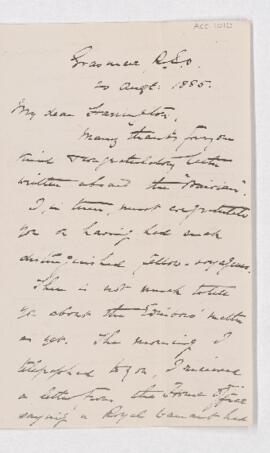 ACC 1010
Grasmere R.S.O.
20 Augt. 1885.
My dear Farrington,
Many thanks for your
kind & congratulatory letter
written aboard the "Bavarian".
I, in turn, must congratulate
you on having had such
distinguished fellow-voyagers.
There is not much to tell
you about the matter
as yet. The morning I
telegraphed to you, I received
a letter from the Home Office
saying a Royal Warrant had